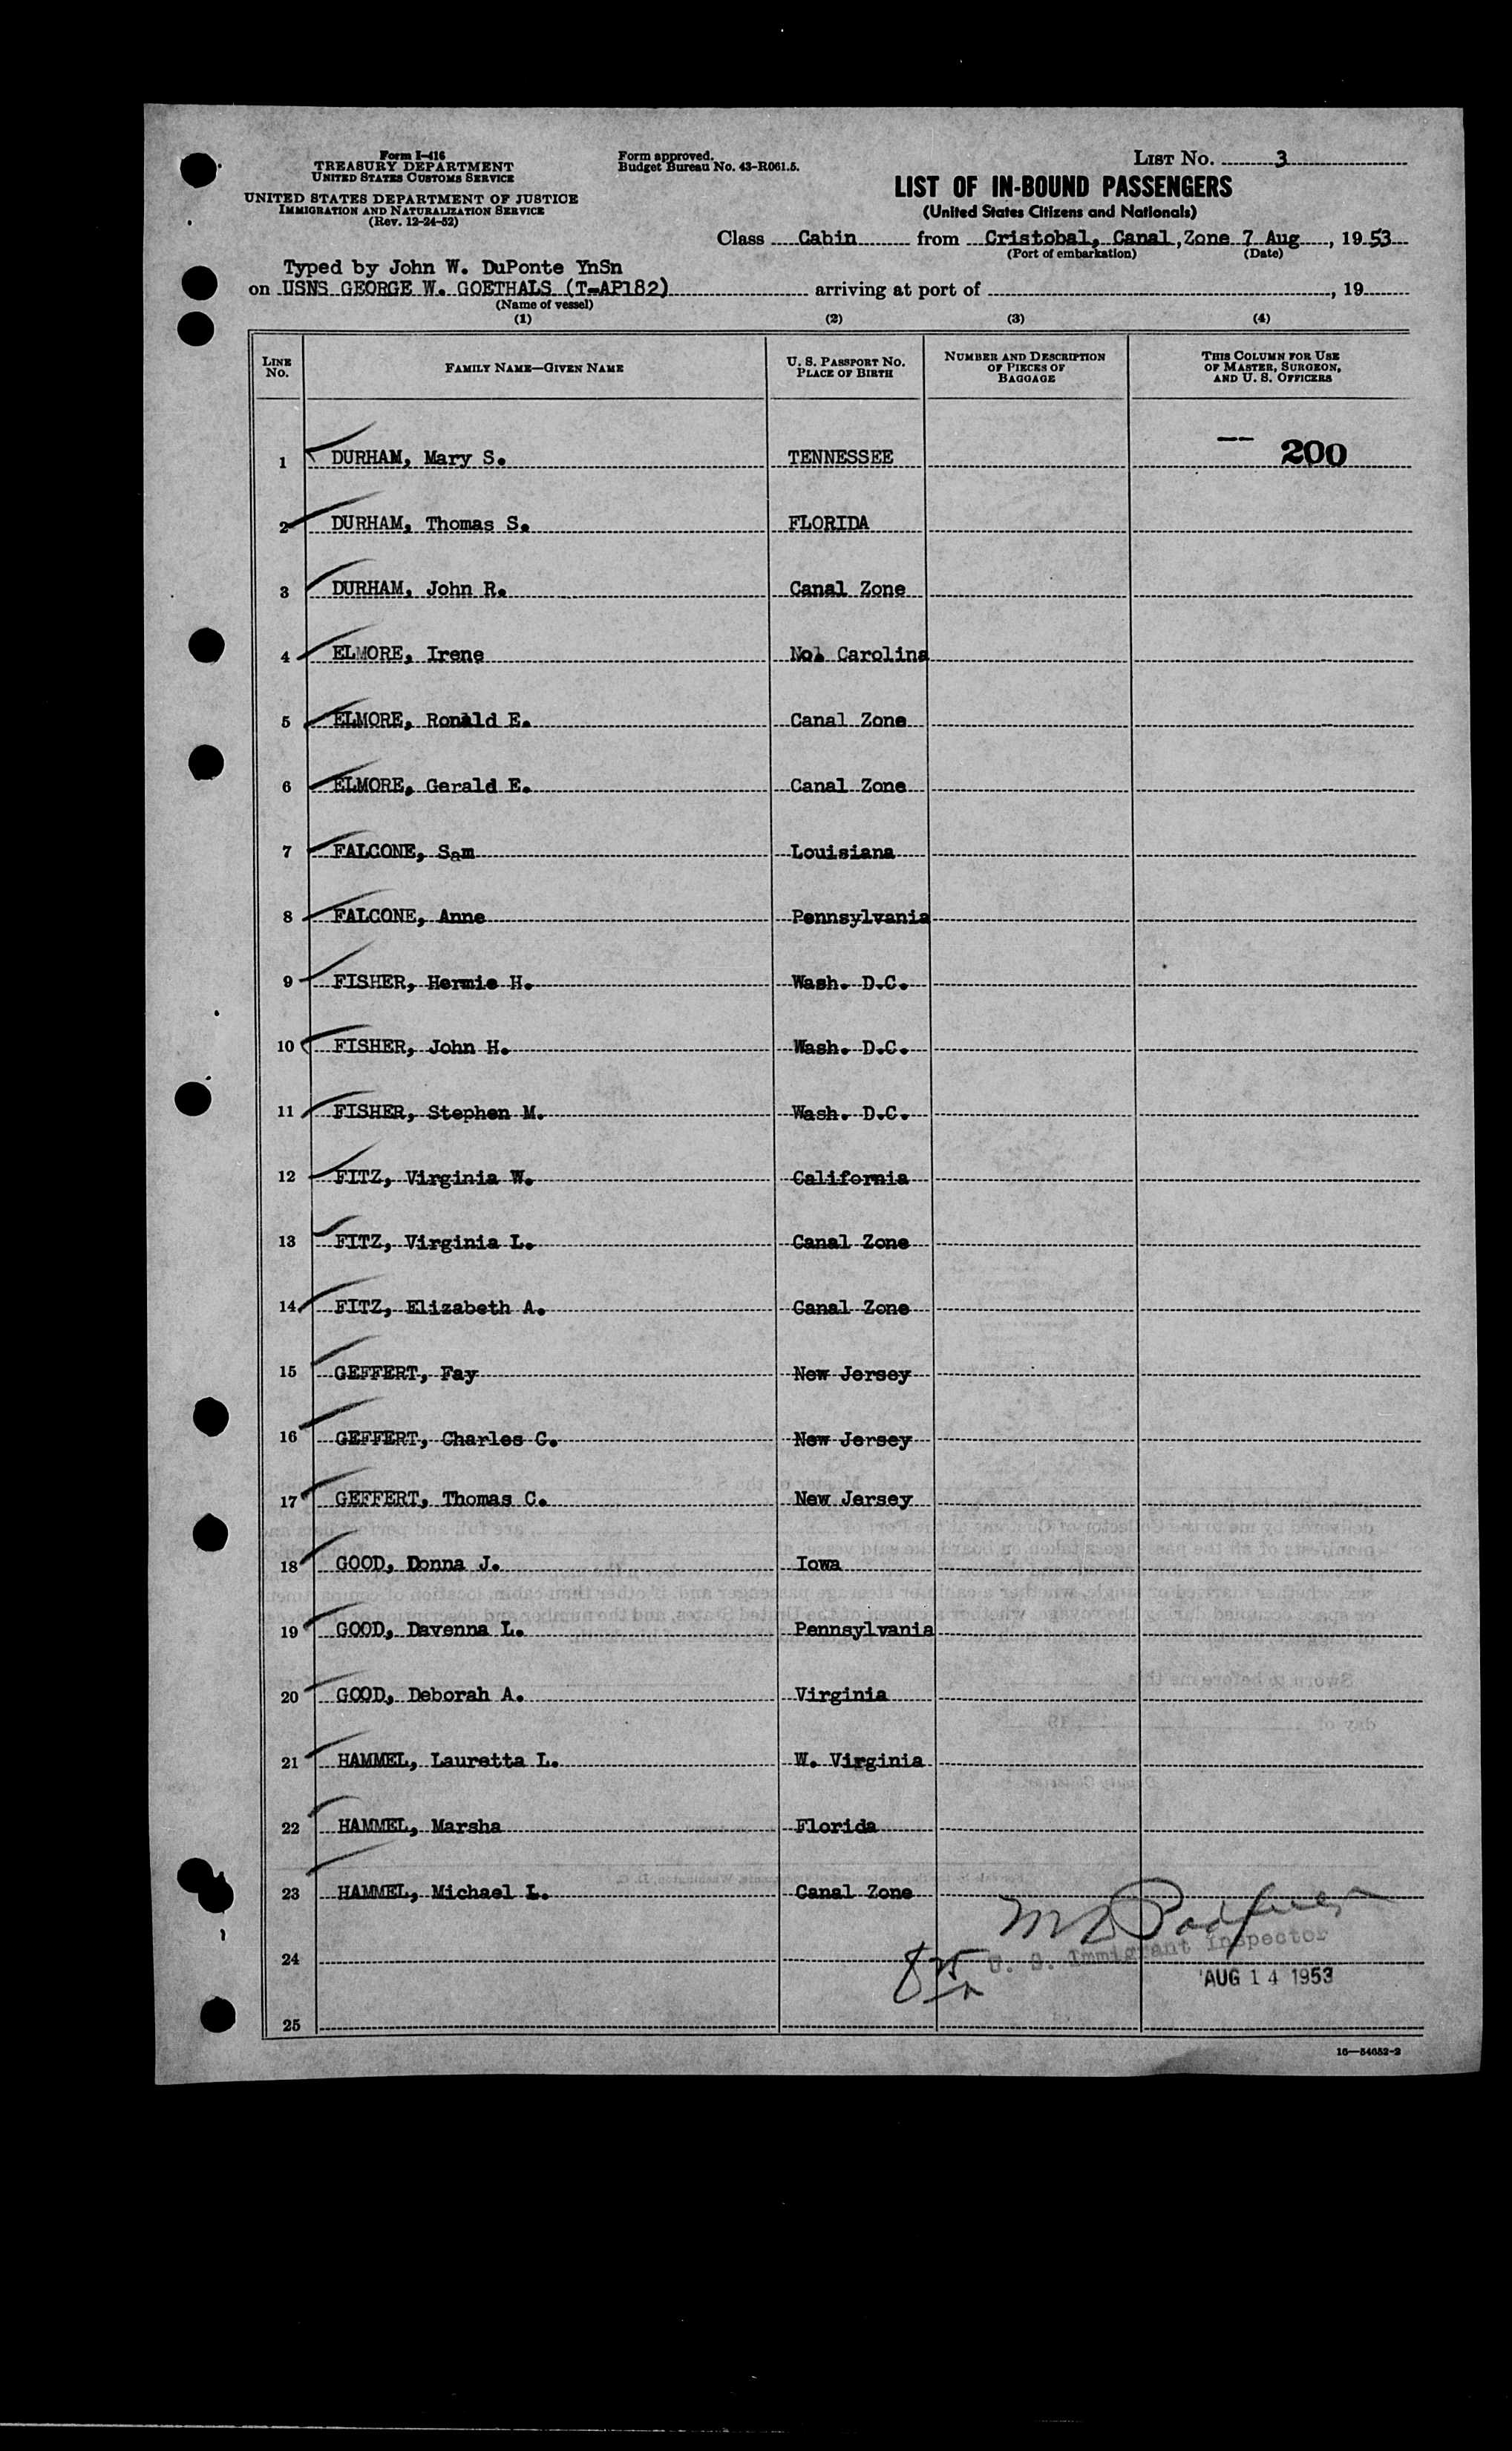 Form I-416
TREASURY DEPARTMENT
UNITED STATES CUSTOMS SERVICE
UNITED STATES DEPARTMENT OF JUSTICE
IMMIGRATION AND NATURALIZATION SERVICE
(Rev. 12-24-52)
Form approved.
Budget Bureau No. 43-R061.5.
LIST NO. 3
LIST OF IN-BOUND PASSENGERS
(United States Citizens and Nationals)
Class Cabin from Cristobal, Canal, Zone 7 Aug, 1953
(Port of embarkation) (Date)
Typed by John W. DuPonte YnSn
on USNS GEORGE W. GOETHALS (T-AP182) arriving at port of , 19
(Name of vessel)
(1) (2) (3) (4)
LINE NO. FAMILY NAME—GIVEN NAME U. S. PASSPORT NO. PLACE OF BIRTH NUMBER AND DESCRIPTION OF PIECES OF BAGGAGE THIS COLUMN FOR USE OF MASTER, SURGEON, AND U. S. OFFICERS
1 DURHAM, Mary S. TENNESSEE 200
2 DURHAM, Thomas S. FLORIDA
3 DURHAM, John R. Canal Zone
4 ELMORE, Irene No. Carolina
5 ELMORE, Ronald E. Canal Zone
6 ELMORE, Gerald E. Canal Zone
7 FALCONE, Sam Louisiana
8 FALCONE, Anne Pennsylvania
9 FISHER, Hermie H. Wash. D.C.
10 FISHER, John H. Wash. D.C.
11 FISHER, Stephen M. Wash. D.C.
12 FITZ, Virginia W. California
13 FITZ, Virginia L. Canal Zone
14 FITZ, Elizabeth A. Canal Zone
15 GEFFERT, Fay New Jersey
16 GEFFERT, Charles C. New Jersey
17 GEFFERT, Thomas C. New Jersey
18 GOOD, Donna J. Iowa
19 GOOD, Davenna L. Pennsylvania
20 GOOD, Deborah A. Virginia
21 HAMMEL, Lauretta L. W. Virginia
22 HAMMEL, Marsha Florida
23 HAMMEL, Michael L. Canal Zone
24 U. S. Immigrant Inspector
AUG 14 1953
25
16—54652-2